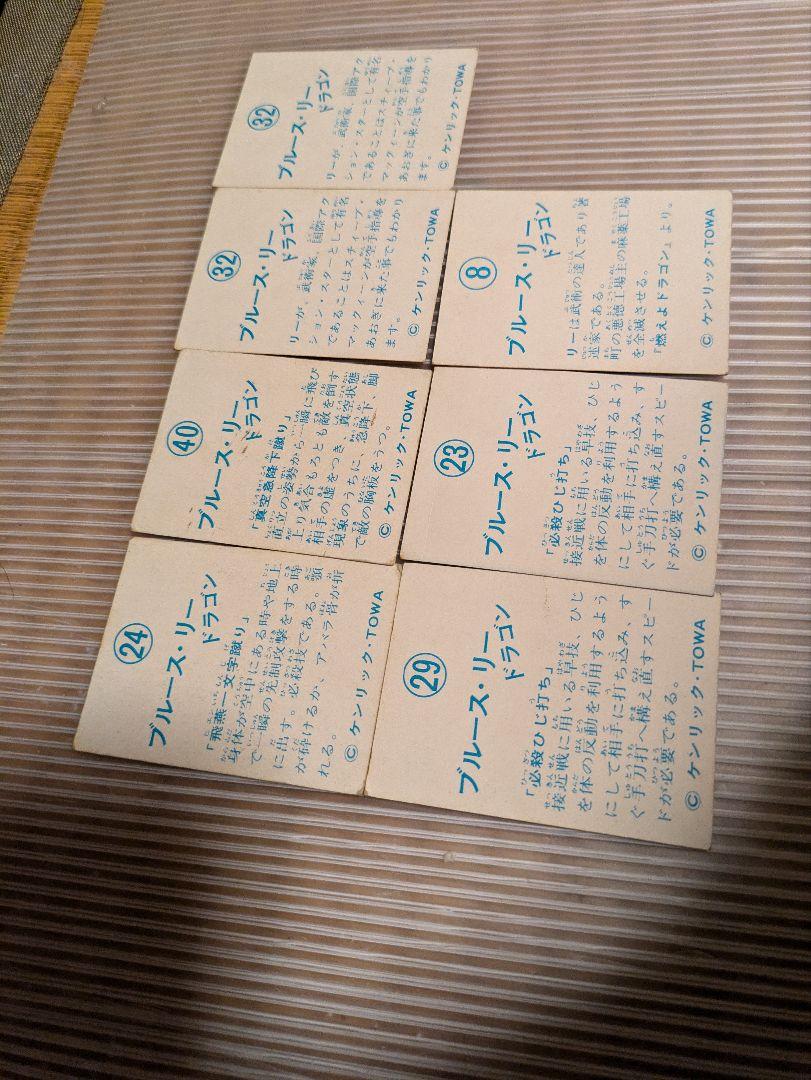 32
ブルース・リー
ドラゴン
リーが、武術家、国際アク
ション・スターとして有名
であることはスティーブ・
マックィーンが空手指導を
あおぎに来た事でもわかり
ます。
© ケンリック・TOWA
32
ブルース・リー
ドラゴン
リーが、武術家、国際アク
ション・スターとして有名
であることはスティーブ・
マックィーンが空手指導を
あおぎに来た事でもわかり
ます。
© ケンリック・TOWA
8
ブルース・リー
ドラゴン
リーは武術の達人であり著
述家である。
町の悪徳工場主の麻薬工場
を全滅させる。
『燃えよドラゴン』より。
© ケンリック・TOWA
40
ブルース・リー
ドラゴン
「真空急降下蹴り」
直立の姿勢から一瞬に飛び
上り気合もろとも敵を倒す
相手の虚をつき、真空状態
現象のうちに、急降下、脚
で敵の胸板をうつ。
© ケンリック・TOWA
23
ブルース・リー
ドラゴン
「必殺ひじ打ち」
接近戦に用いる早技、ひじ
を体の反動を利用するよう
にして相手に打ち込み、す
ぐ手刀打へ構え直すスピー
ドが必要である。
© ケンリック・TOWA
24
ブルース・リー
ドラゴン
「飛燕一文字蹴り」
身体が空中にある時や地上
で一瞬の先制攻撃をする時
に出す。必殺技である。顎
が砕けるか、アバラ骨が折
れる。
© ケンリック・TOWA
29
ブルース・リー
ドラゴン
「必殺ひじ打ち」
接近戦に用いる早技、ひじ
を体の反動を利用するよう
にして相手に打ち込み、す
ぐ手刀打へ構え直すスピー
ドが必要である。
© ケンリック・TOWA